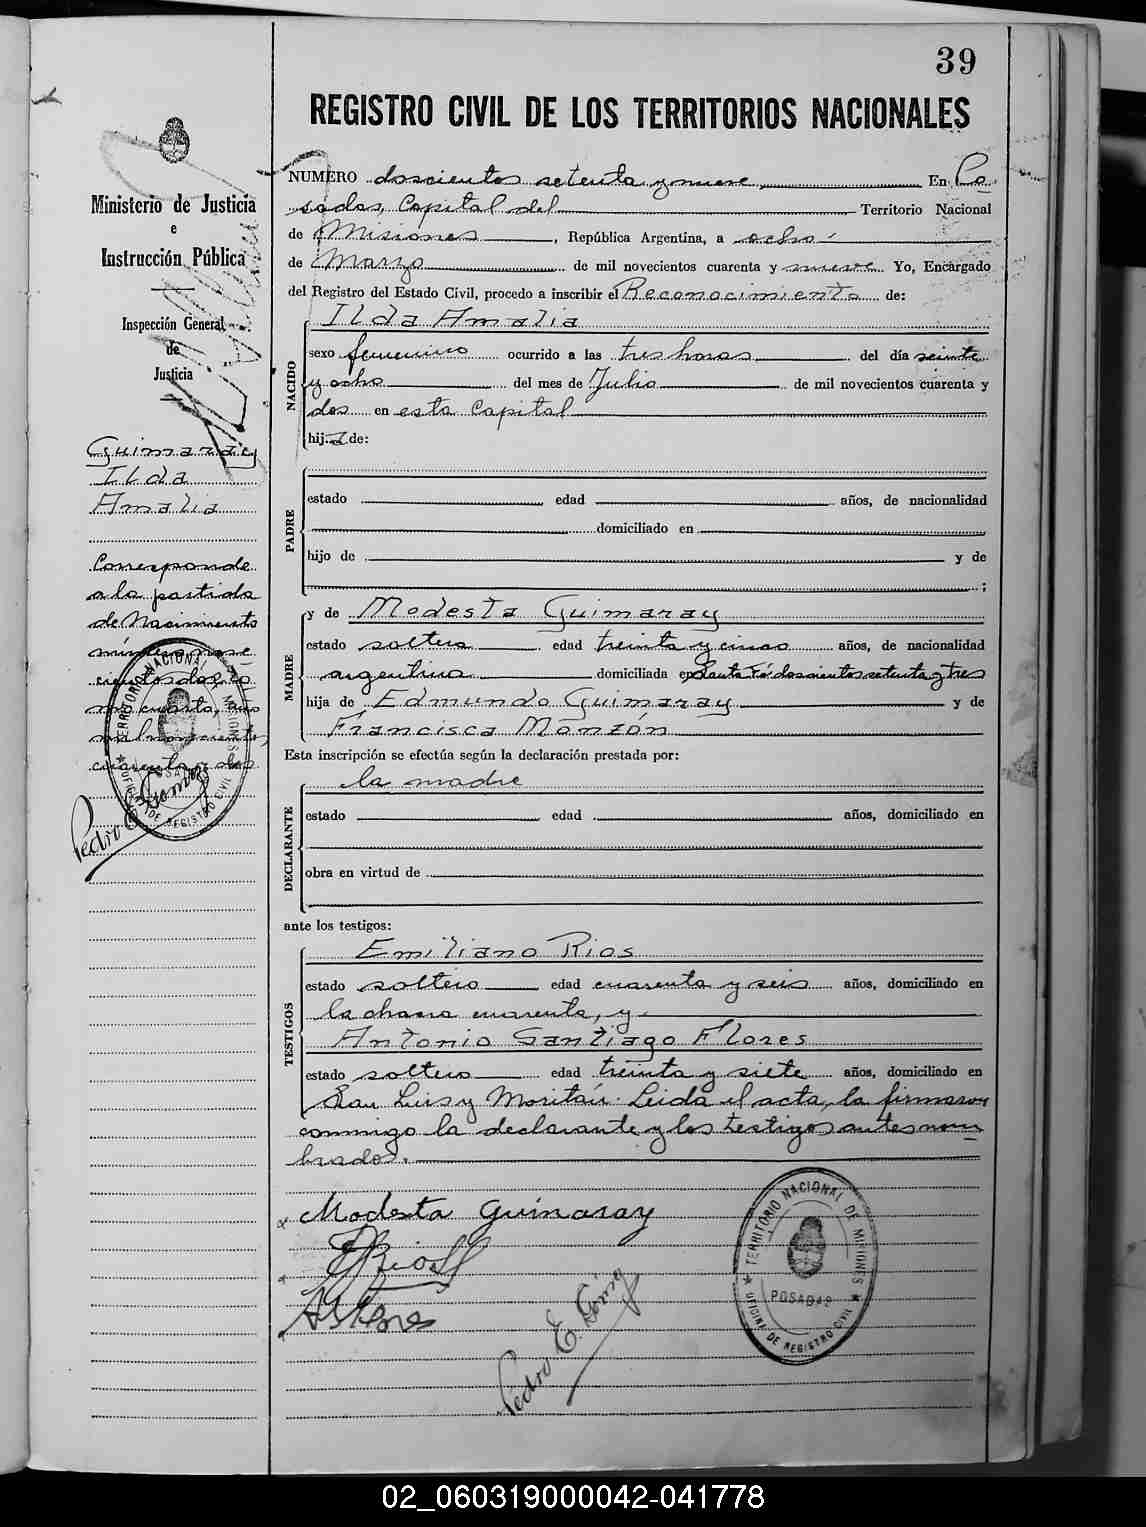 39
REGISTRO CIVIL DE LOS TERRITORIOS NACIONALES
Ministerio de Justicia
e
Instrucción Pública
Inspección General
de
Justicia
Guimaray
Ilda
Amalia
Corresponde
a la partida
de Nacimiento
número nove
cientos
cuarenta
mil novecientos
cuarenta y dos
Pedro E. Gomez
TERRITORIO NACIONAL DE MISIONES
POSADAS
OFICINA DE REGISTRO CIVIL
NUMERO doscientos setenta y nueve En Po
sadas, Capital del Territorio Nacional
de Misiones, República Argentina, a ocho
de Marzo de mil novecientos cuarenta y nueve Yo, Encargado
del Registro del Estado Civil, procedo a inscribir el Reconocimiento de:
NACIDO
Ilda Amalia
sexo femenino ocurrido a las tres horas del día veinte
y ocho del mes de Julio de mil novecientos cuarenta y
dos en esta Capital
hija de:
PADRE
estado edad años, de nacionalidad
domiciliado en
hijo de y de
;
MADRE
y de Modesta Guimaray
estado soltera edad treinta y cinco años, de nacionalidad
argentina domiciliada en Santa Fé doscientos setenta y tres
hija de Edmundo Guimaray y de
Francisca Monzón
Esta inscripción se efectúa según la declaración prestada por:
DECLARANTE
la madre
estado edad años, domiciliado en
obra en virtud de
ante los testigos:
TESTIGOS
Emiliano Rios
estado soltero edad cuarenta y seis años, domiciliado en
la chacra cuarenta, y
Antonio Santiago Flores
estado soltero edad treinta y siete años, domiciliado en
San Luis y Moritán. Leida el acta, la firmaron
conmigo la declarante y los testigos antes nom
brados.
Modesta Guimaray
E Rios
Pedro E. Gómez
TERRITORIO NACIONAL DE MISIONES
POSADAS
OFICINA DE REGISTRO CIVIL
02_060319000042-041778